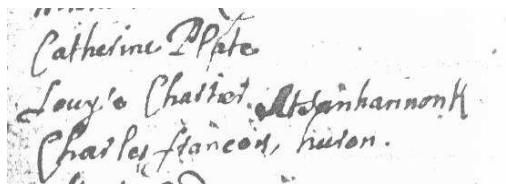 Catherine Plate
Louys Chartier. Atsanhannonk
Charles françois, huron.